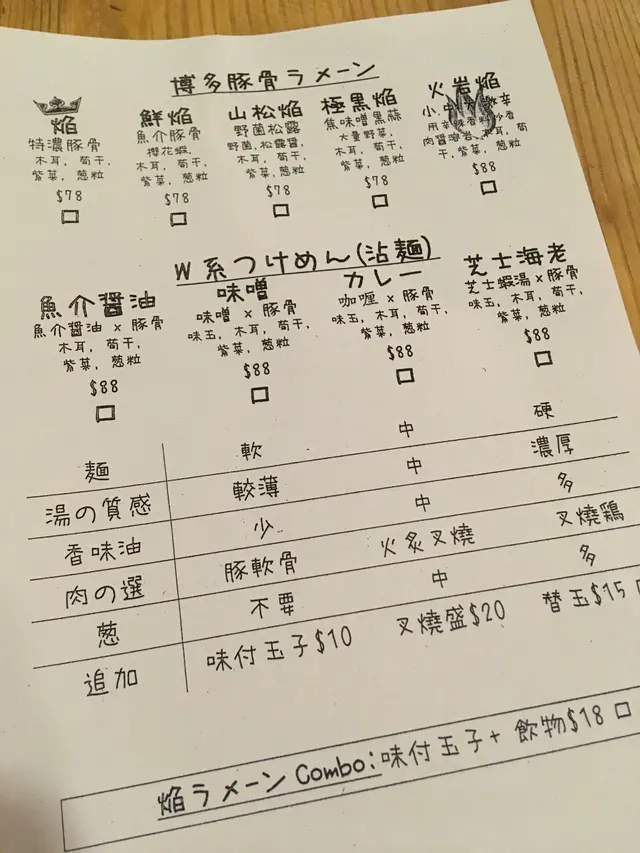 博多豚骨ラーメン
焔
特濃豚骨
木耳, 筍干,
紫菜, 葱粒
$78
□
鮮焔
魚介豚骨
櫻花蝦,
木耳, 筍干,
紫菜, 葱粒
$78
□
山松焔
野菌松露
野菌, 松露醤,
木耳, 筍干,
紫菜, 葱粒
$78
□
極黒焔
焦味噌黒蒜
大量野菜,
木耳, 筍干,
紫菜, 葱粒
$78
□
火岩焔
小, 中
肉醤溶岩, 木耳, 筍
干, 紫菜, 葱粒
$88
□
W系つけめん(沾麺)
魚介醤油
魚介醤油 x 豚骨
木耳, 筍干,
紫菜, 葱粒
$88
□
味噌
味噌 x 豚骨
味玉, 木耳, 筍干,
紫菜, 葱粒
$88
□
カレー
咖喱 x 豚骨
味玉, 木耳, 筍干,
紫菜, 葱粒
$88
□
芝士海老
芝士蝦湯 x 豚骨
味玉, 木耳, 筍干,
紫菜, 葱粒
$88
□
麺 軟 中 硬
湯の質感 較薄 中 濃厚
香味油 少 中 多
肉の選 豚軟骨 火炙叉燒 叉燒鶏
葱 不要 中 多
追加 味付玉子$10 叉燒盛$20 替玉$15
焔ラーメン Combo: 味付玉子+ 飲物$18 □